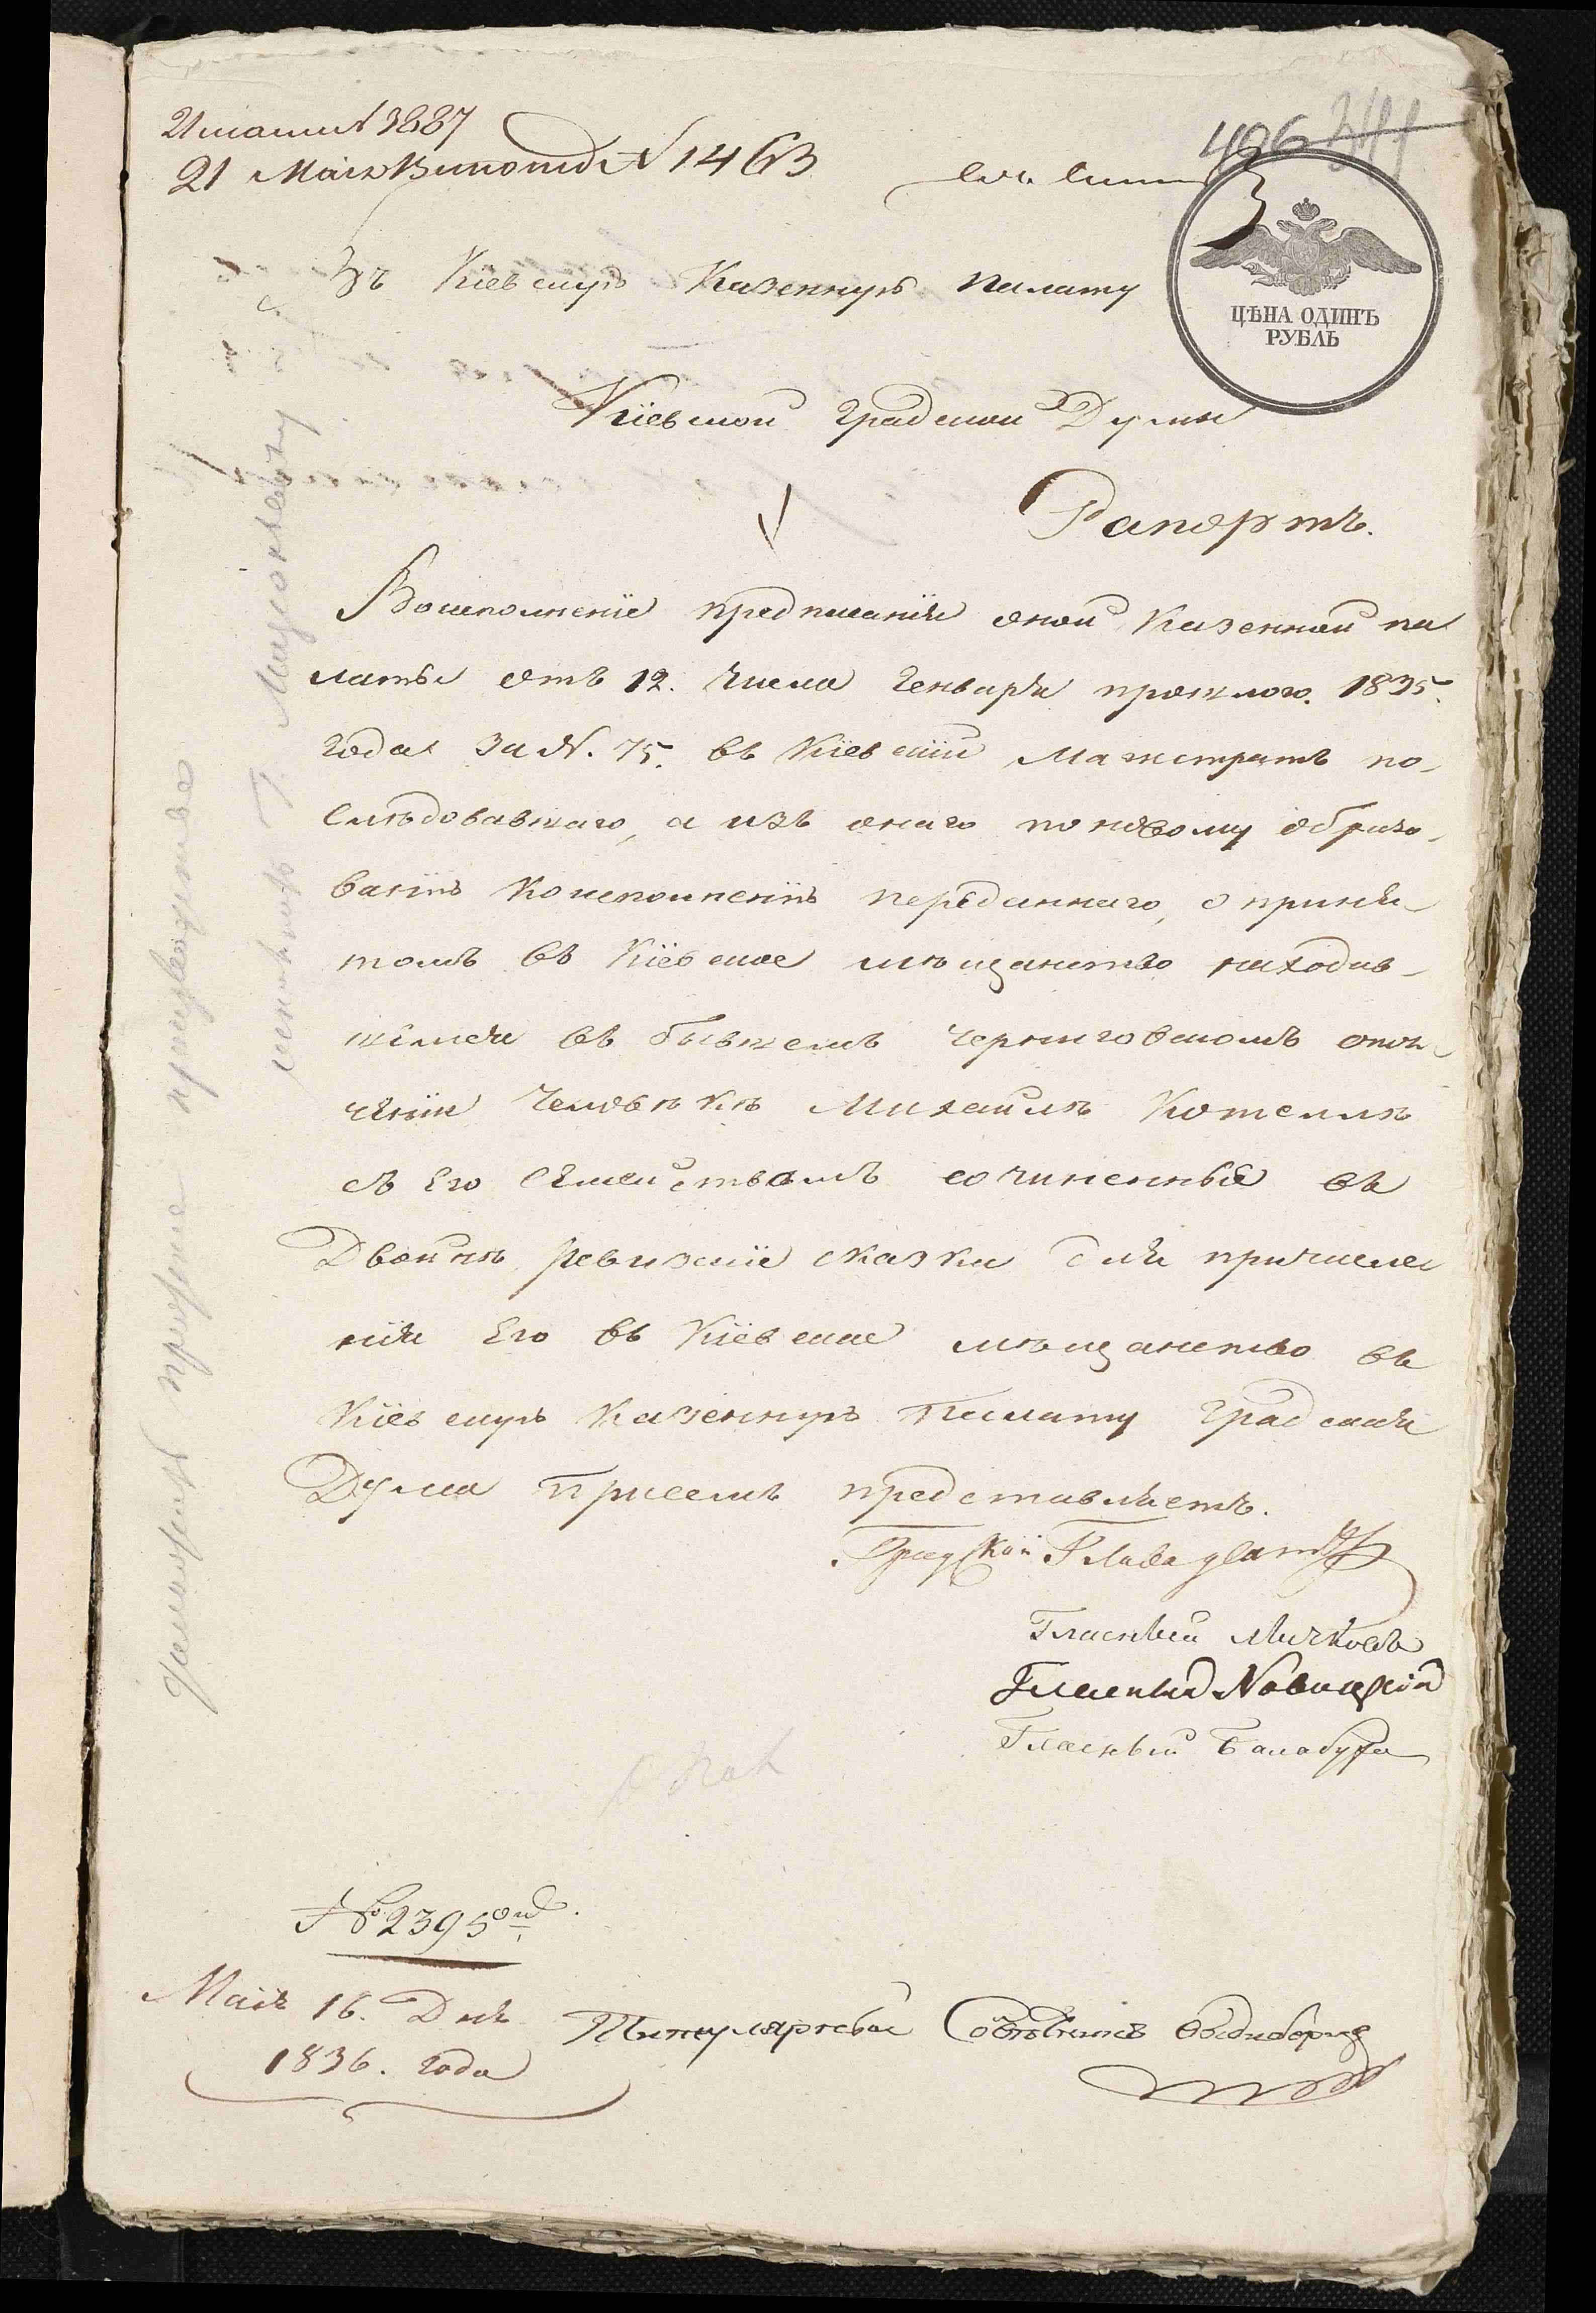 № 3887
21 Мая № 1463
406
Въ Кіевскую Казенную палату
ЦѢНА ОДИНЪ
РУБЛЬ
Кіевской градской Думы
Рапортъ.
Во исполненіе предписанія оной Казенной па
латы отъ 12. числа Генваря прошлого. 1835.
года за N. 75. въ Кіевскій Магистратъ по-
слѣдовавшаго, а изъ онаго по новому образо-
ванію къ исполненію переданнаго, о приня-
томъ въ Кіевское мѣщанство находив-
шемся въ бывшемъ Черниговскомъ опол-
ченіи Человѣкѣ Михайлѣ Котелкѣ
съ Его Семействомъ сочиненные въ
Двойнѣ ревизскіе сказки для причисле
нія Его въ Кіевское мѣщанство въ
Кіевскую Казенную Палату Градская
Дума при семъ представляетъ.
Градской Глава
Гласный Личковъ
Гласный Новицкій
Гласный Балабуха
№ 2395
Мая 16. Дня
1836. года
Титулярный Совѣтникъ